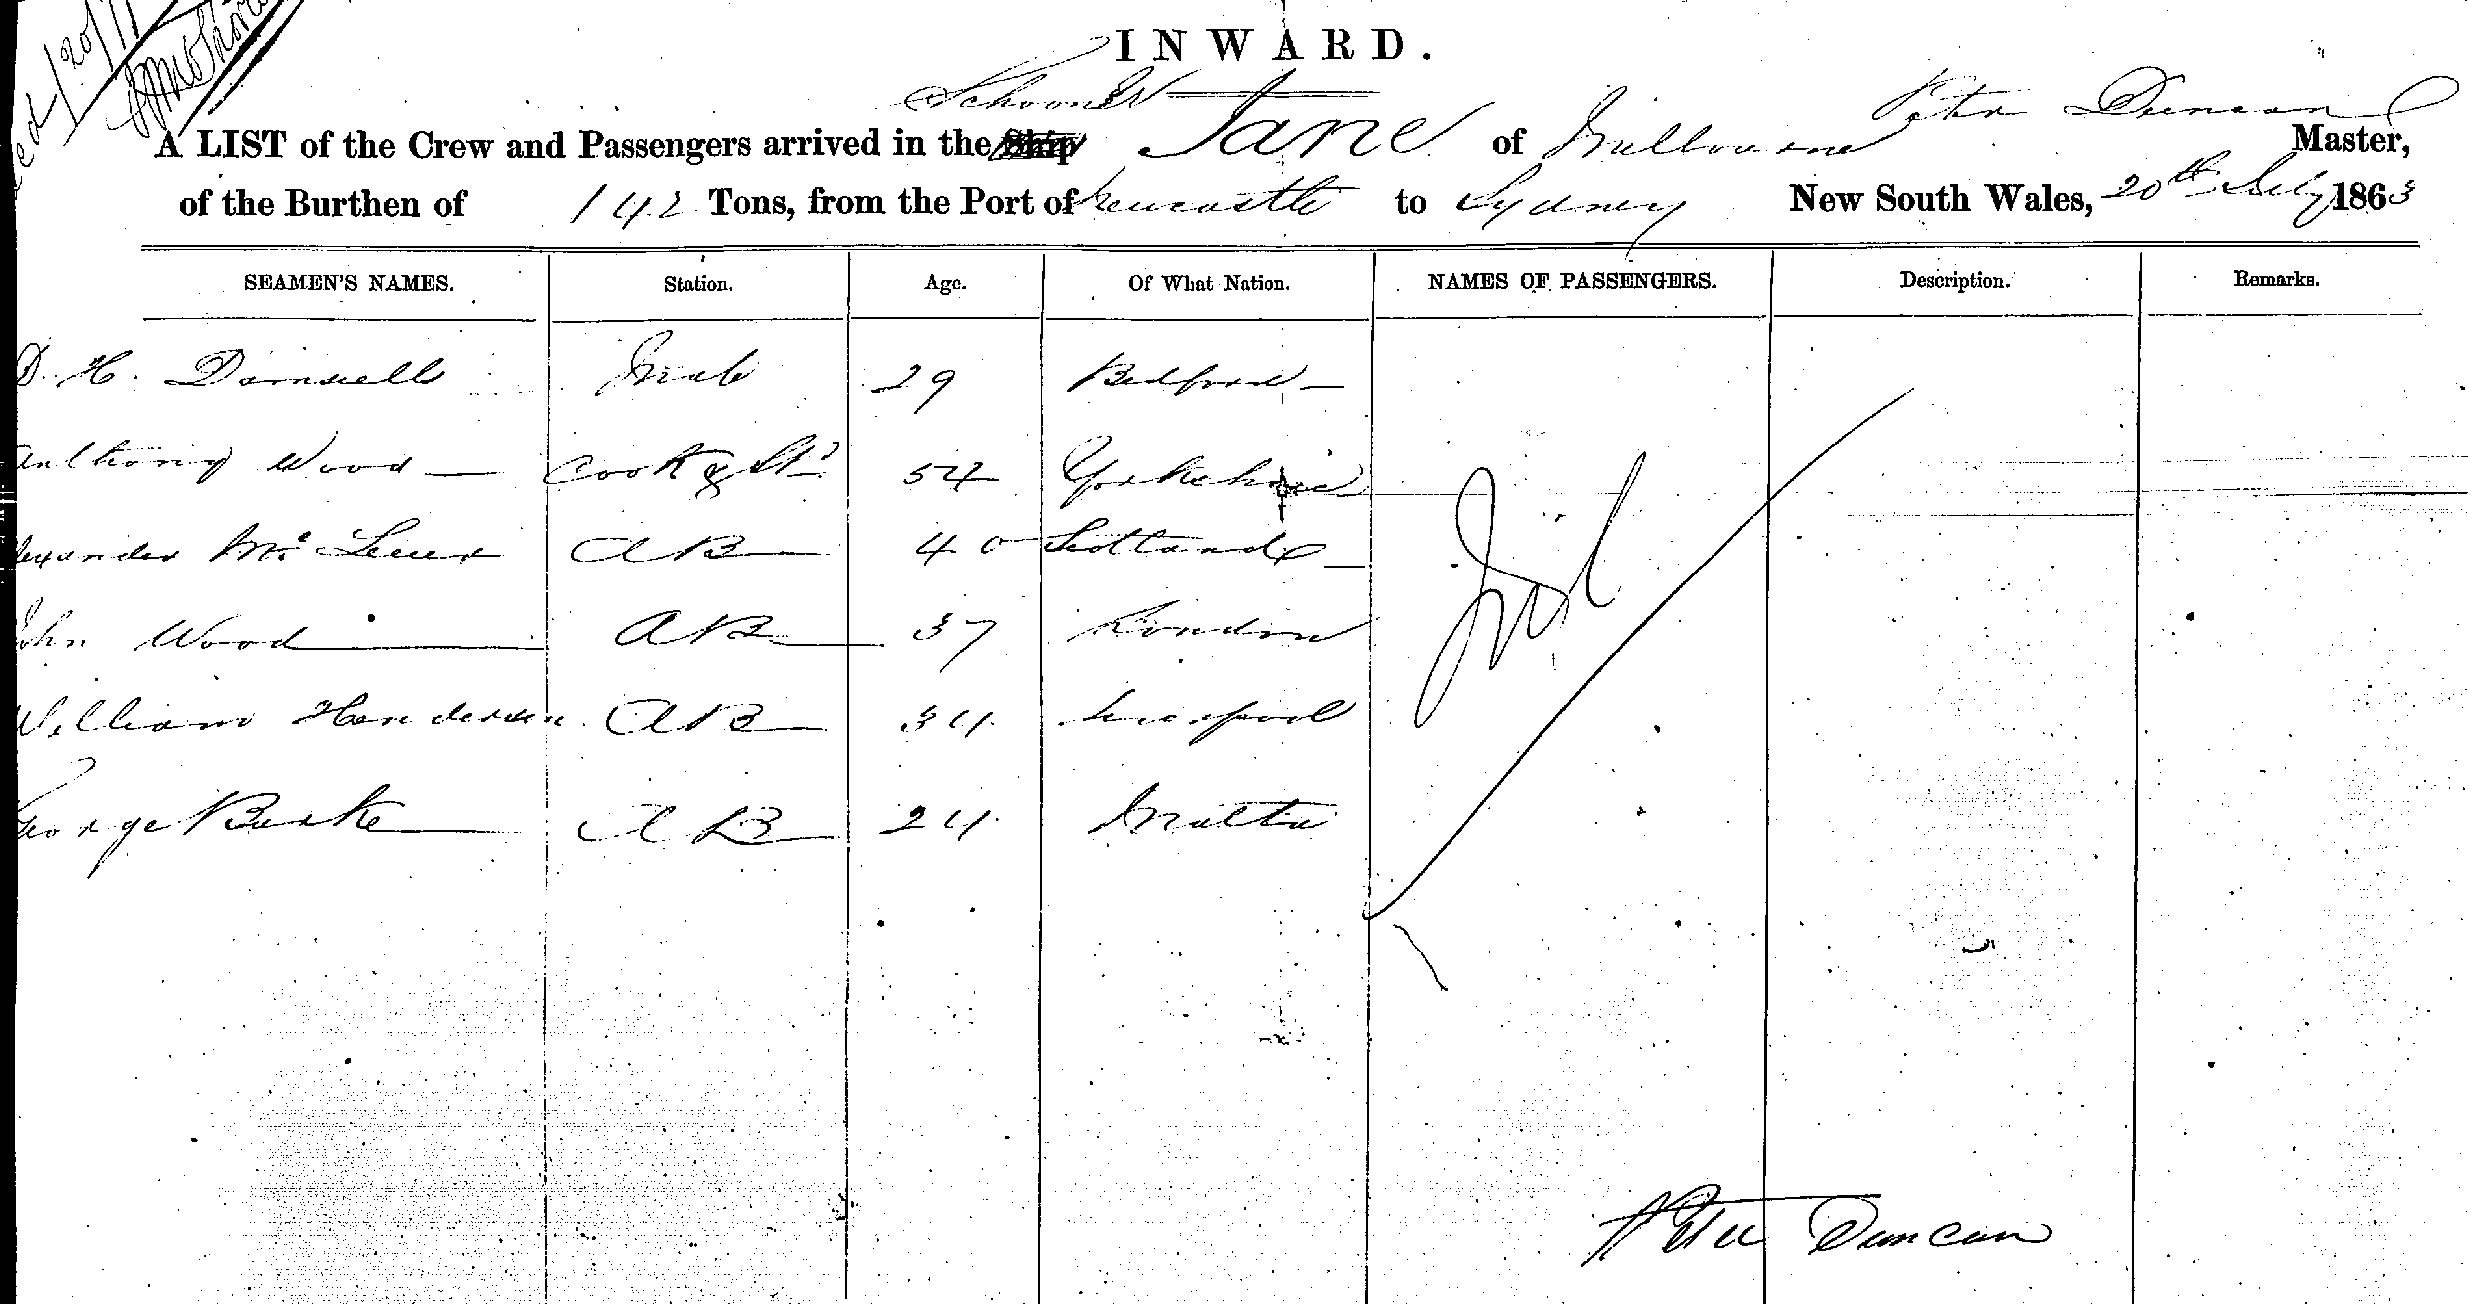 INWARD.
Schooner
A LIST of the Crew and Passengers arrived in the Ship Jane of Melbourne Peter Duncan Master,
of the Burthen of 142 Tons, from the Port of Newcastle to Sydney New South Wales, 20th July 1863
SEAMEN'S NAMES. Station. Age. Of What Nation. NAMES OF PASSENGERS. Description. Remarks.
D. H. Mate 29 Bedford
Anthony Wood Cook & St 54 Yorkshire
lexander Mc AB 40 Scotland
John Wood AB 37 London
Nil
William Henderson AB 34 Liverpool
George Burke AB 24 Malta
Peter Duncan